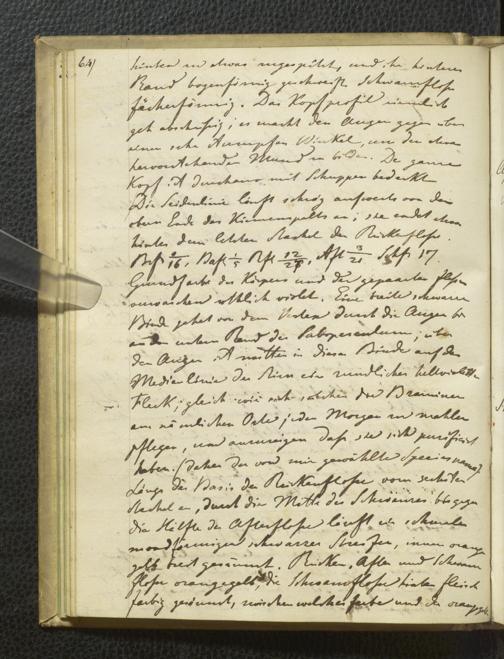 64)
hinten in etwas zugespitzt, und ihr hinterer
Rand bogenförmig geschweift. Schwanzflosse
fächerförmig. Das Kopfprofil ziemlich
abschüssig; es macht den Augen gegenüber
einen sehr stumpfen Winkel, um den etwas
hervorstehenden Mund zu bilden. Der ganze
Kopf ist durchaus mit Schuppen bedeckt
Die Seitenlinie läuft schräg aufwärts von dem
obern Ende des Kiemenspaltes an; sie endet etwas
hinter dem letzten Stachel der Rückenflosse.
Brf 2/16, Baf 1/5 Rf 12/27, Aft 3/21 Schf 17.
Grundfarbe des Körpers und der gepaarten Flossen
röthlich violet. Eine breite schwarze
Binde gehet von dem Nacken durch die Augen bis
an den untern Rand des Suboperculum; über
den Augen ist mitten in dieser Binde auf der
Medianlinie der Stirn ein rundlicher hellvioletter
Fleck; gleich wie sich solchen die Braminen
am nämlichen Orte jeden Morgen zu mahlen
pflegen, um anzuzeigen daß sie sich purificirt
haben. (Daher der von mir gewählte Speciesname)
Längs der Basis der Rückenflosse vom sechsten
Stachel an, durch die Mitte des Schwanzes bis gegen
die Hälfte der Afterflosse läuft ein schmaler
mondförmiger schwarzer Streifen, innen orange
gelb breit gesäumt. Rücken, After und Schwanz
flosse orangegelb, die Schwanzflosse hinten fleisch
farbig gesäumt, zwischen welcher Farbe und der orangegelb.